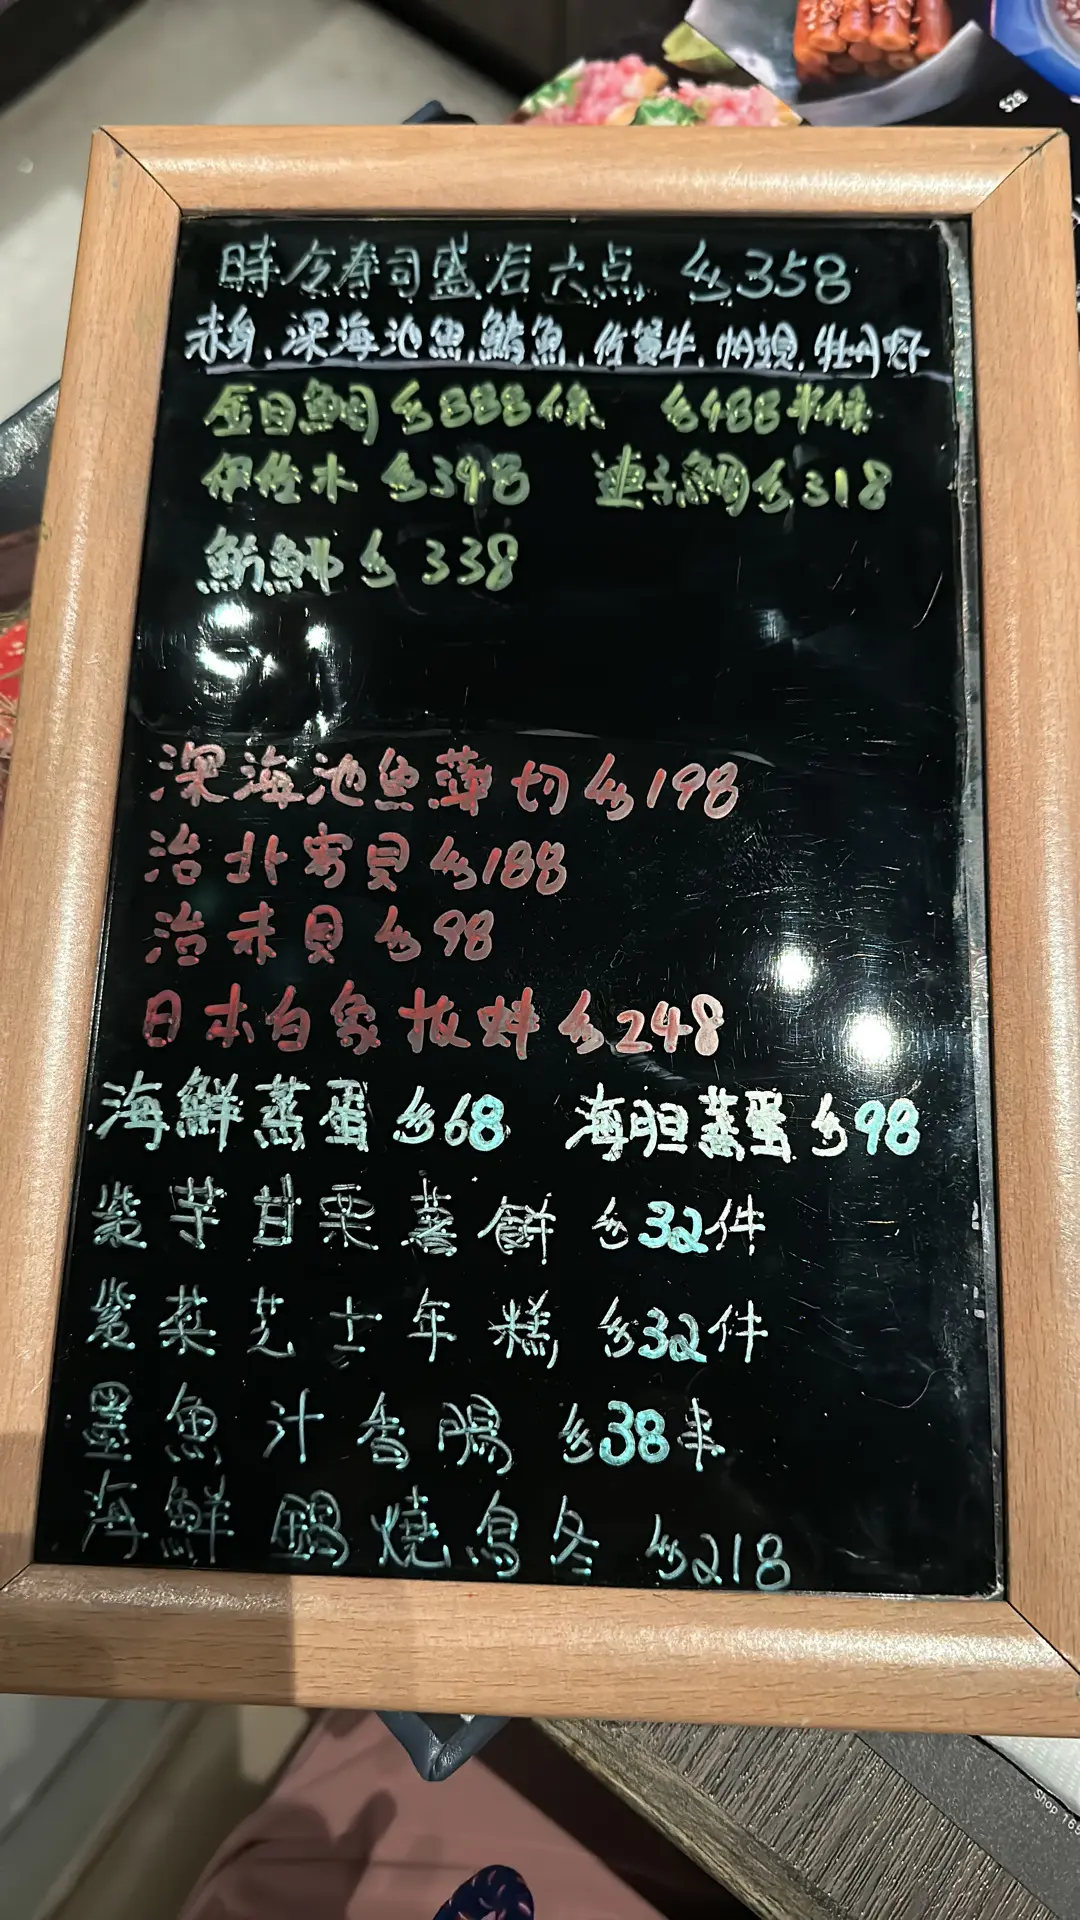 時令寿司盛合六点 $358
赤身,深海池魚,鯖魚,佐賀牛,牡丹虾
金目鯛 $888條 $488半條
伊佐木 $348 連子鯛 $318
魴鮄 $338
深海池魚薄切 $198
活北寄貝 $188
活赤貝 $98
日本白象拔蚌 $248
海鮮蒸蛋 $68 海胆蒸蛋 $98
紫芋甘栗薯餅 $32件
紫菜芝士年糕 $32件
墨魚汁香腸 $38串
海鮮鍋燒烏冬 $218